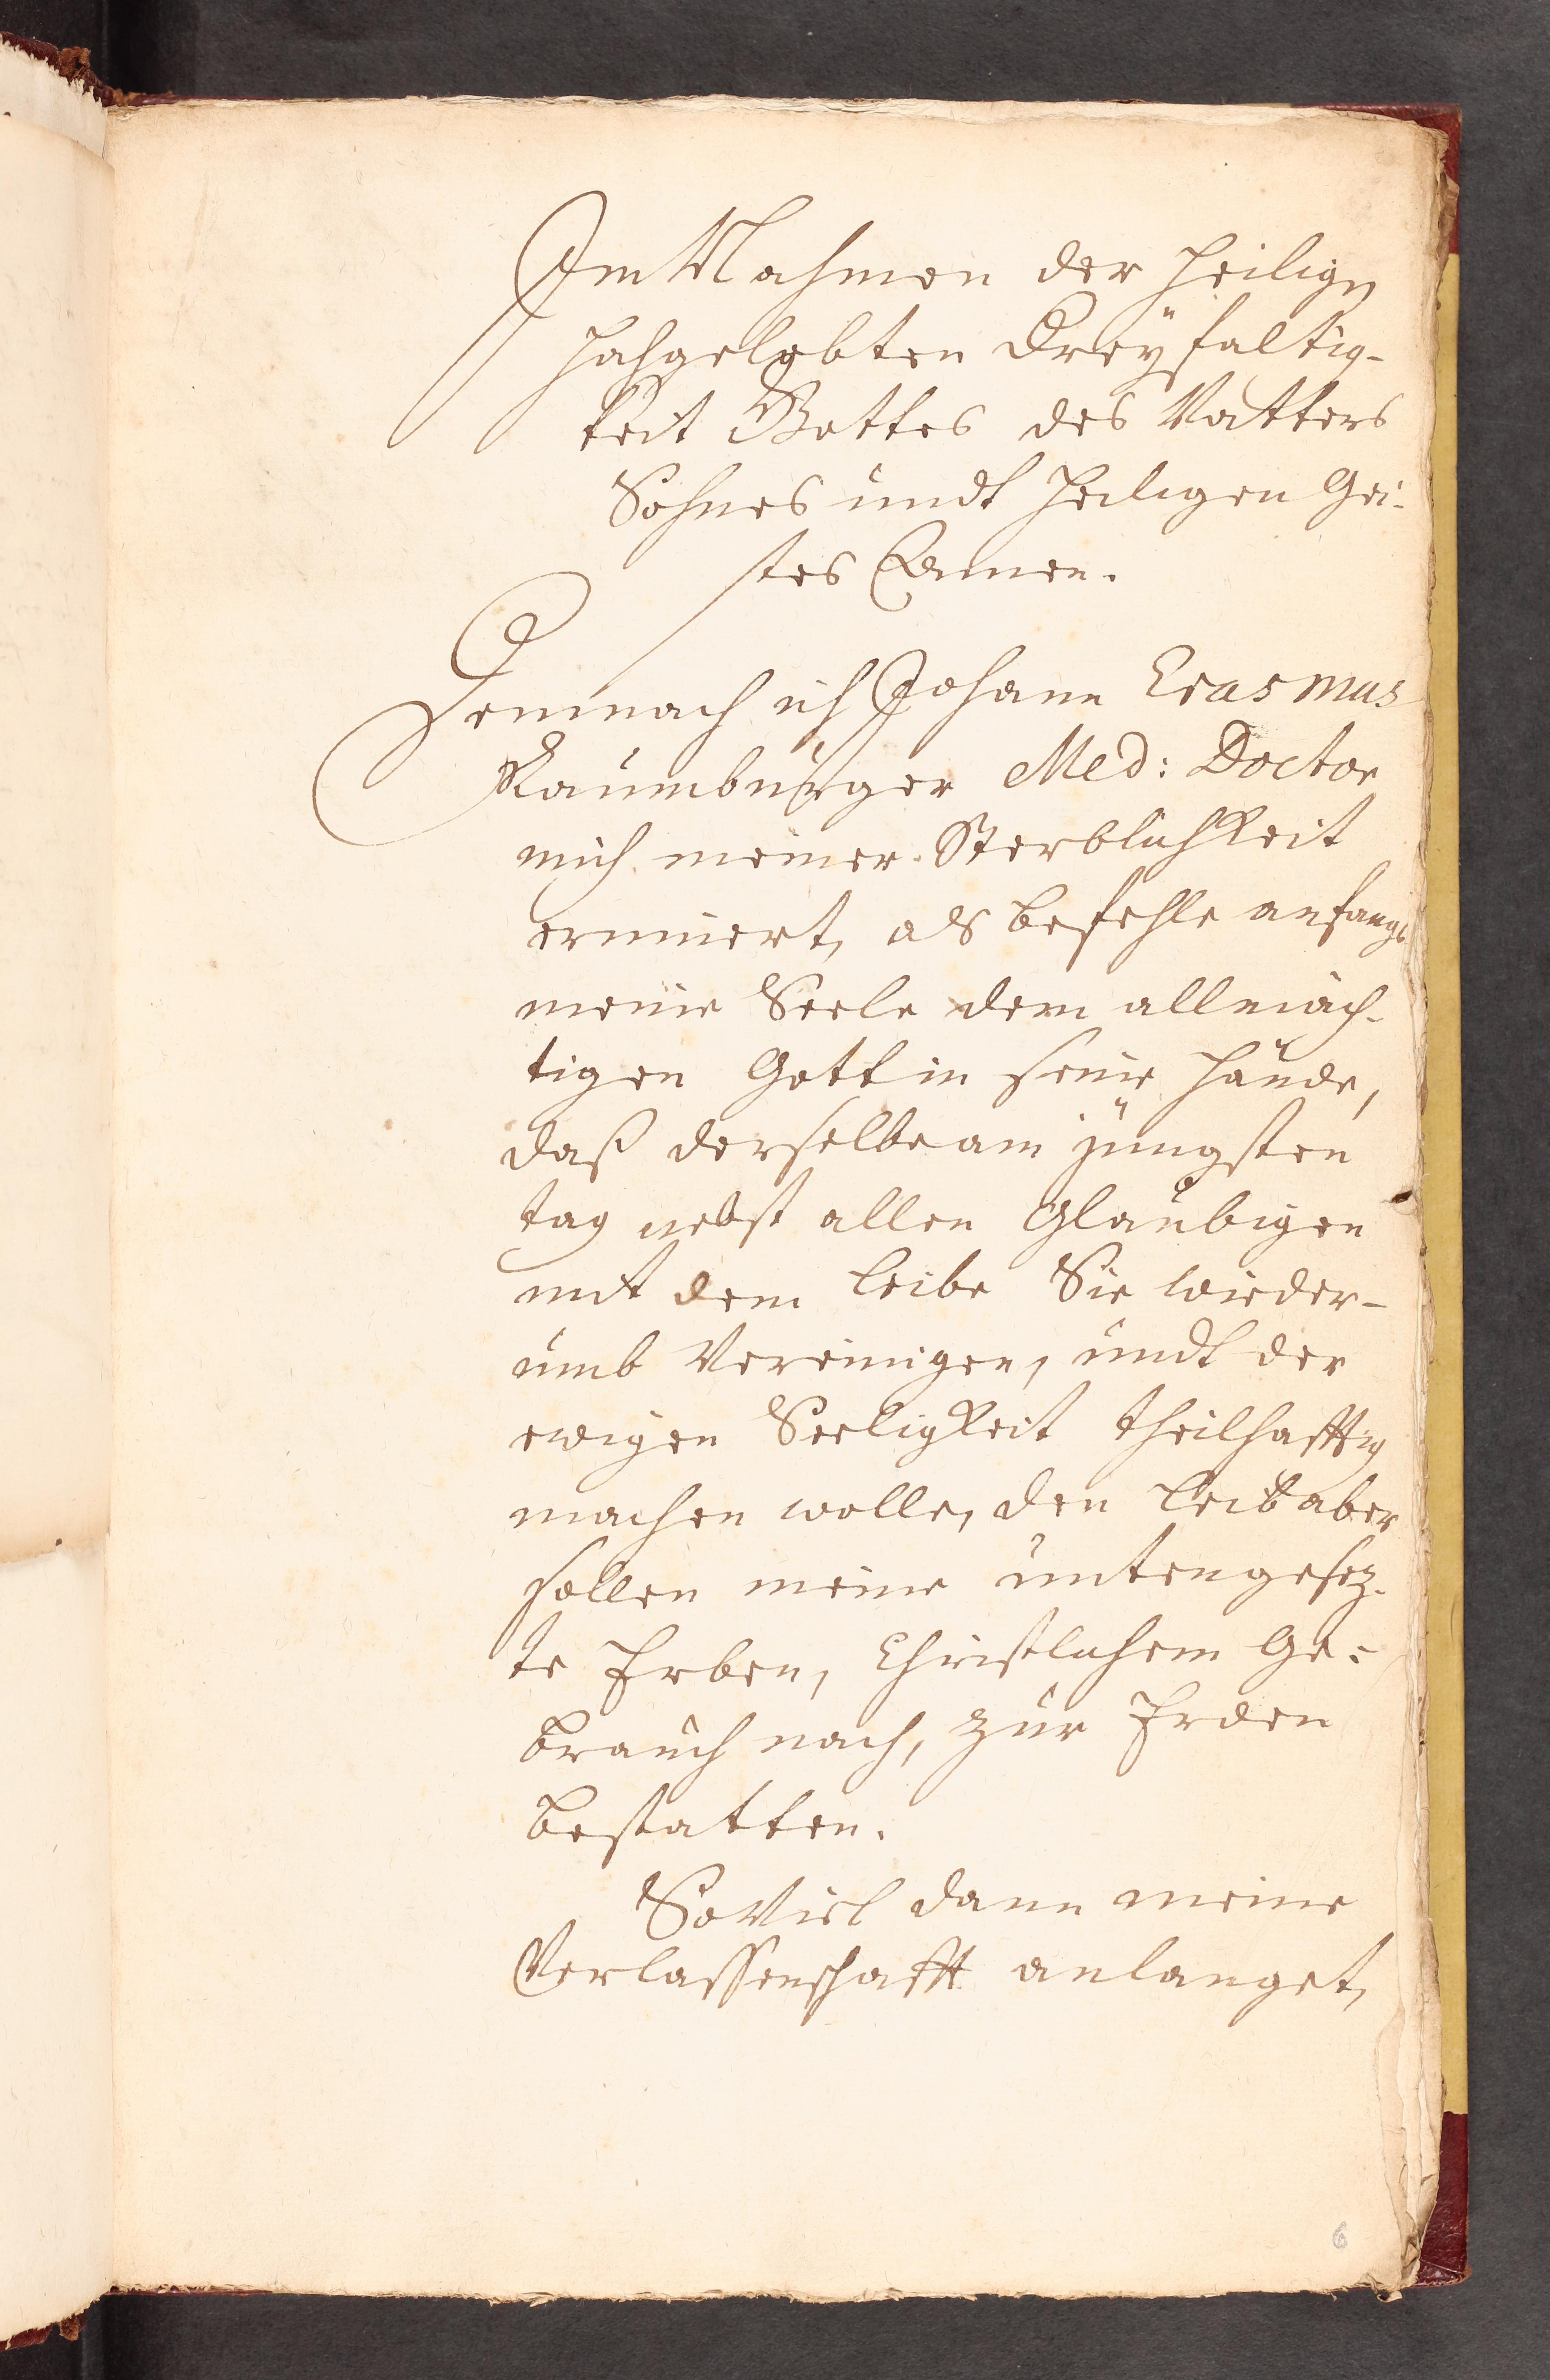 Im Nahmen der Heilign
Hochgelobten Dreyfaltig-
keit Gottes des Vatters
Sohnes undt Heiligen Gei-
stes Amen.
Demnach ich Johann Erasmus
Naumburger Med: Doctor
mich meiner Sterblichkeit
erinnert, als befehle anfangs
meine Seele dem allmäch-
tigen Gott in seine Hände,
daß derselbe am jüngsten
tag nebst allen Glaubigen
mit dem leibe Sie wieder-
umb Vereinigen, undt der
ewigen Seeligkeit theilhafftig
machen wolle, den leib aber
sollen meine untengesez-
te Erben, Christlichem Ge-
brauch nach, zur Erden
bestatten.
So Viel dann meine
Verlassenschafft anlanget,
6